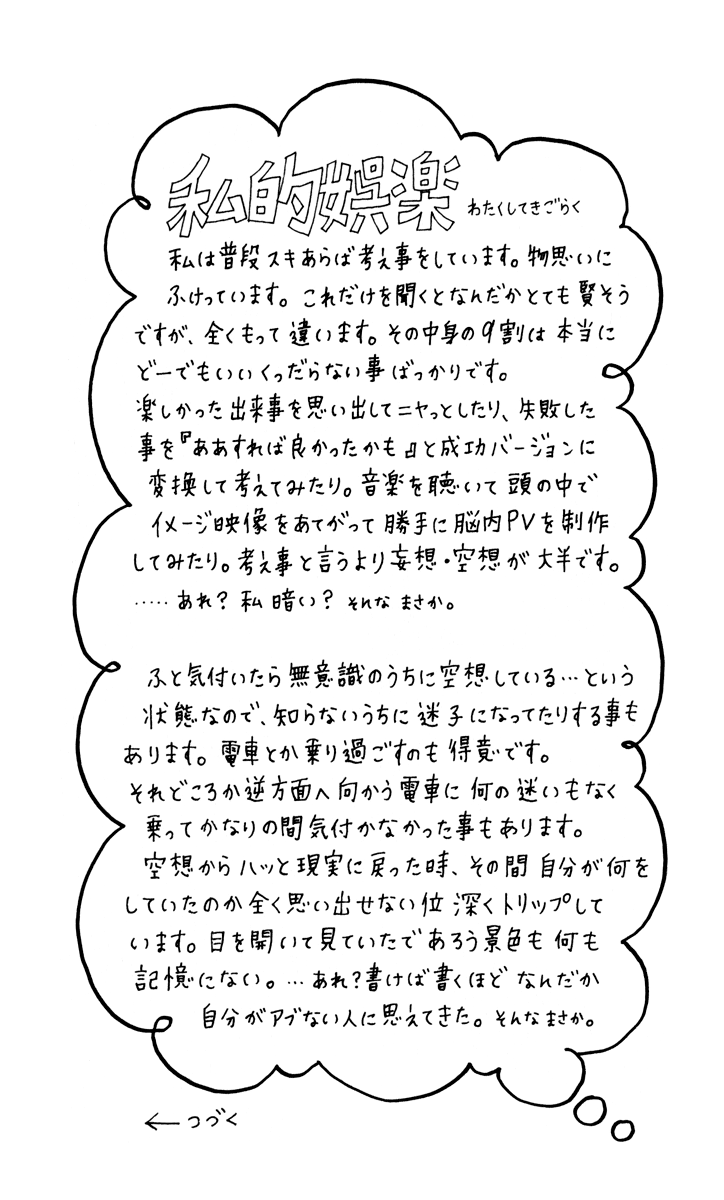 私的娯楽 わたくしてきごらく
私は普段スキあらば考え事をしています。物思いに
ふけっています。これだけを聞くとなんだかとても賢そう
ですが、全くもって違います。その中身の9割は本当に
どーでもいいくっだらない事ばっかりです。
楽しかった出来事を思い出してニヤっとしたり、失敗した
事を『ああすれば良かったかも』と成功バージョンに
変換して考えてみたり。音楽を聴いて頭の中で
イメージ映像をあてがって勝手に脳内PVを制作
してみたり。考え事と言うより妄想・空想が大半です。
‥‥‥あれ？私暗い？そんなまさか。
ふと気付いたら無意識のうちに空想している…という
状態なので、知らないうちに迷子になってたりする事も
あります。電車とか乗り過ごすのも得意です。
それどころか逆方面へ向かう電車に何の迷いもなく
乗ってかなりの間気付かなかった事もあります。
空想からハッと現実に戻った時、その間自分が何を
していたのか全く思い出せない位深くトリップして
います。目を開いて見ていたであろう景色も何も
記憶にない。…あれ？書けば書くほどなんだか
自分がアブない人に思えてきた。そんなまさか。
←つづく